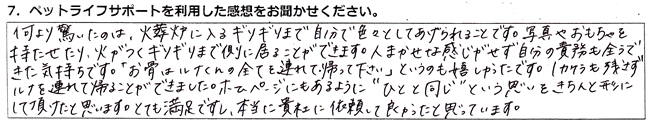 7. ペットライフサポートを利用した感想をお聞かせください。
何より驚いたのは、火葬炉に入るギリギリまで自分で色々としてあげられることです。写真やおもちゃを
持たせたり、火がつくギリギリまで側に居ることができます。人まかせな感じがせず自分の責務も全うで
きた気持ちです。「お骨はルナくんの全てを連れて帰って下さい」というのも嬉しかったです。1カケラも残さず
ルナを連れて帰ることができました。ホームページにもあるように"ひとと同じ"という思いをきちんと形に
して頂けたと思います。とても満足ですし、本当に貴社に依頼して良かったと思っています。